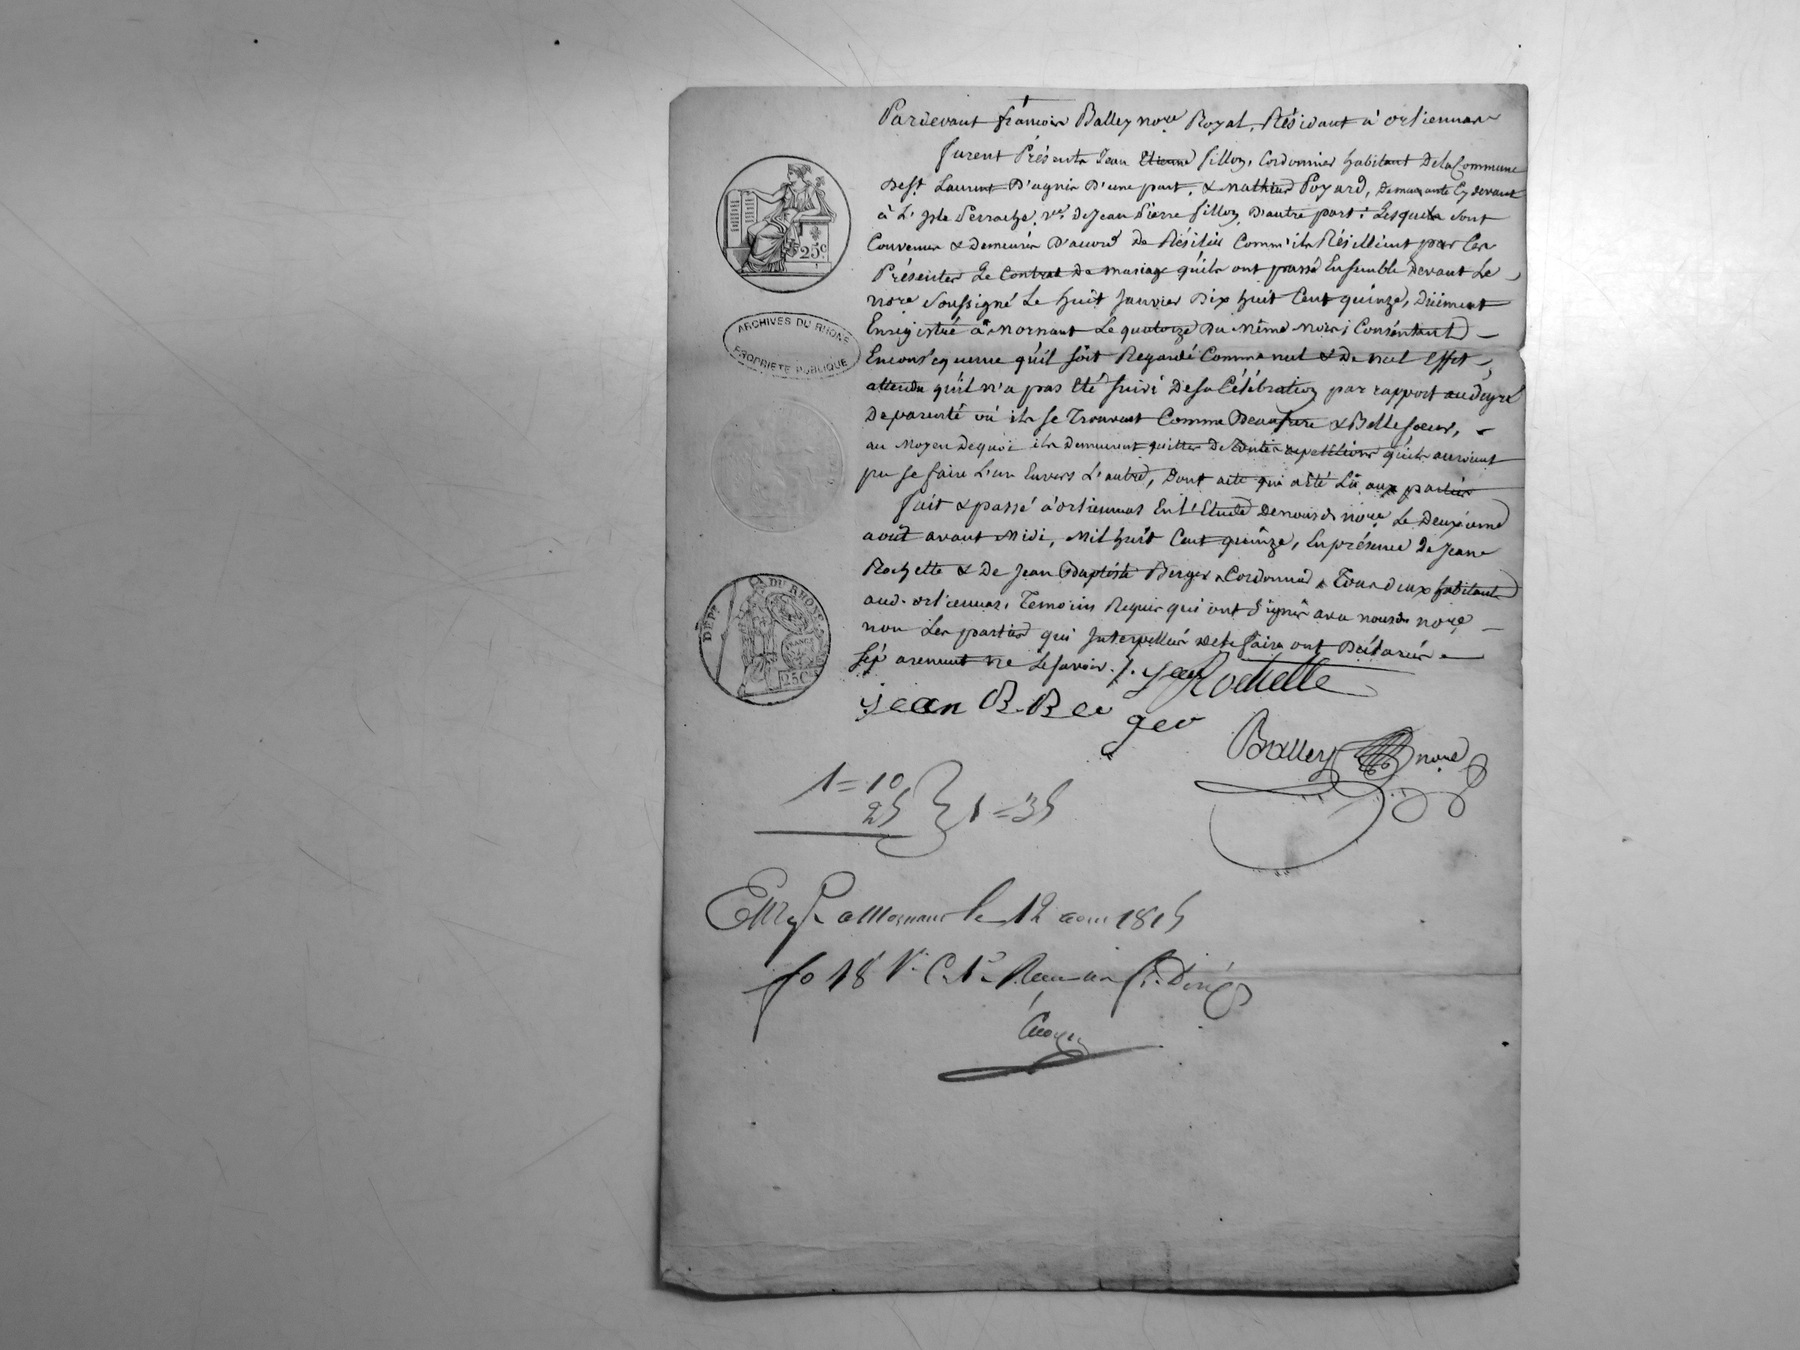 Pardevant françois Balley nore Royal, Résidant à orliennas
furent Présents Jean Etienne fillon, Cordonnier habitant De la Commune
De st Laurent D'agnis D'une part, & mathieu Poyard, Demeurante Cy devant
à L'Isle Perrache, ve De Jean Pierre fillon, D'autre part; Lesquels sont
Convenus & Demeurés D'accord De Résilier Comm'ils Résillient par Ces
Présentes Le Contrat De mariage qu'ils ont passé Ensemble Devant Le
nore soussigné Le huit Janvier Dix huit Cent quinze, Dûement
Enregistré à Mornant Le quatorze Du même Mois; Consentant
Enconséquence qu'il soit Regardé Comme nul & De nul Effet,
attendu qu'il n'a pas Eté suivi De sa Célébration par rapport au Degré
De parenté où ils se Trouvent Comme Beaufrere & Belle soeur,
au Moyen De quoi ils Demeurent quittes De toutes repetitions qu'ils auroient
pu se faire L'un Envers L'autre, Dont acte qui a été Lû aux parties
fait & passé à orliennas En L'Etude De nous d. nore Le Deuxieme
août avant Midi, Mil huit Cent quinze, En présence De Jean
Rochette & De Jean Baptiste Berger Cordonnier, Tous Deux habitants
aud. orliennas, Temoins Requis qui ont signés avec nous d. nore
non Les parties qui Interpellées De le faire ont Déclarées
séparement ne Le savoir ./.
Jean Rochette
jean B. Ber ger
Balley nore
1=10
25
1=35
Enregt a Mornant le 12 aout 1815
fo 18 V. C. 1re Recu un fr. Dix
25C.
ARCHIVES DU RHONE
PROPRIETE PUBLIQUE
DEPT. DU RHONE
25C